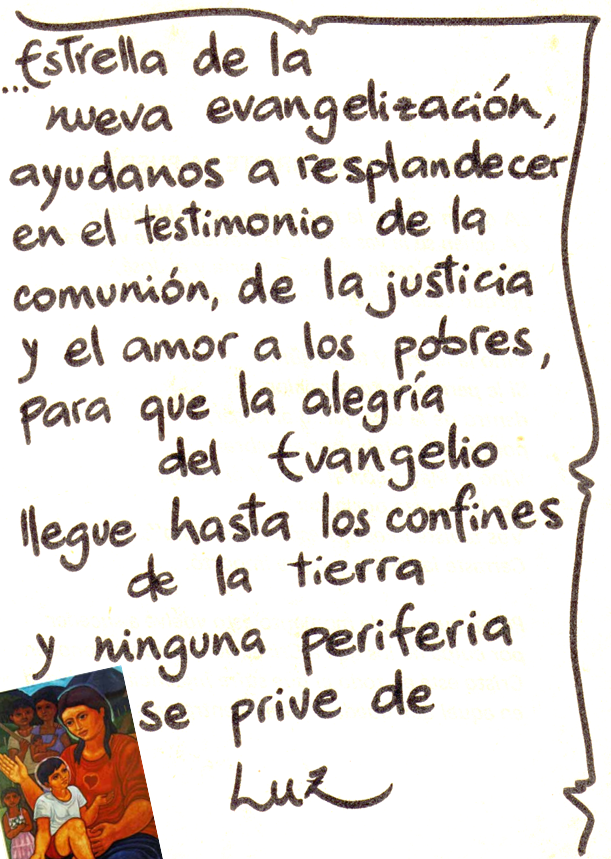 ...Estrella de la
nueva evangelización,
ayudanos a resplandecer
en el testimonio de la
comunión, de la justicia
y el amor a los pobres,
para que la alegría
del Evangelio
llegue hasta los confines
de la tierra
y ninguna periferia
se prive de
Luz